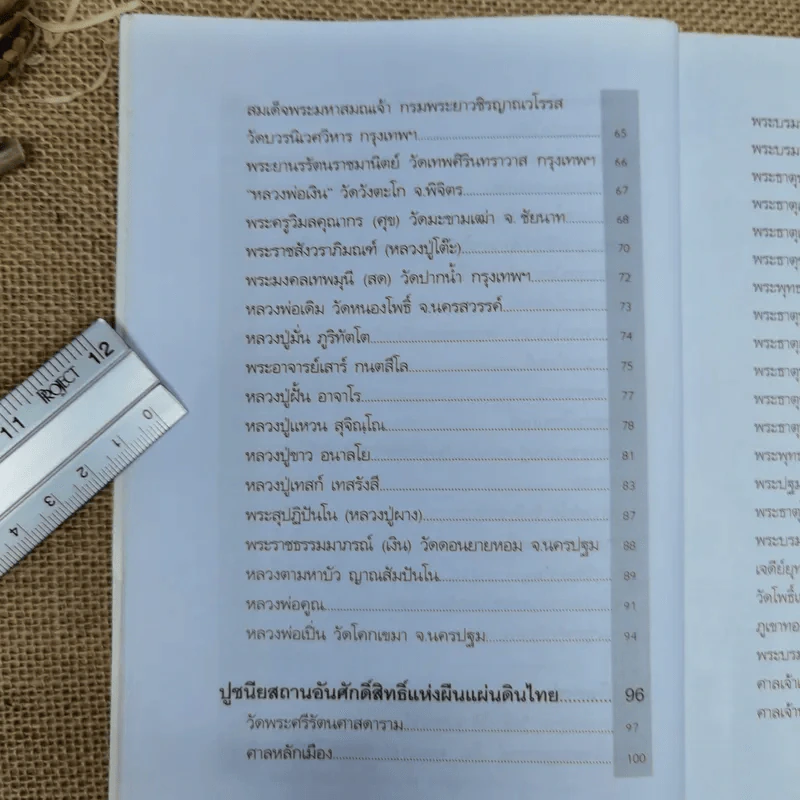 สมเด็จพระมหาสมณเจ้า กรมพระยาวชิรญาณวโรรส
วัดบวรนิเวศวิหาร กรุงเทพฯ 65
พระยานรรัตนราชมานิตย์ วัดเทพศิรินทราวาส กรุงเทพฯ 66
"หลวงพ่อเงิน" วัดวังตะโก จ.พิจิตร 67
พระครูวิมลคุณากร (ศุข) วัดมะขามเฒ่า จ. ชัยนาท 68
พระราชสังวราภิมณฑ์ (หลวงปู่โต๊ะ) 70
พระมงคลเทพมุนี (สด) วัดปากน้ำ กรุงเทพฯ 72
หลวงพ่อเดิม วัดหนองโพธิ์ จ.นครสวรรค์ 73
หลวงปู่มั่น ภูริทัตโต 74
พระอาจารย์เสาร์ กนตสีโล 75
หลวงปู่ฝั้น อาจาโร 77
หลวงปู่แหวน สุจิณฺโณ 78
หลวงปู่ขาว อนาลโย 81
หลวงปู่เทสก์ เทสรังสี 83
พระสุปฏิปันโน (หลวงปู่ผาง) 87
พระราชธรรมมาภรณ์ (เงิน) วัดดอนยายหอม จ.นครปฐม 88
หลวงตามหาบัว ญาณสัมปันโน 89
หลวงพ่อคูณ 91
หลวงพ่อเปิ่น วัดโคกเขมา จ.นครปฐม 94
ปูชนียสถานอันศักดิ์สิทธิ์แห่งผืนแผ่นดินไทย 96
วัดพระศรีรัตนศาสดาราม 97
ศาลหลักเมือง 100
พระบรม
พระบรม
พระธาตุ
พระธาตุ
พระธาตุ
พระธาตุ
พระพุทธ
พระธาตุ
พระธาตุ
พระธาตุ
พระธาตุ
พระธาตุ
พระพุทธ
พระปฐม
พระธาตุ
พระบรม
เจดีย์ยุท
วัดโพธิ์
ภูเขาทอ
พระบรม
ศาลเจ้า
ศาลเจ้า
11 PROJECT 12
4 3 2 1 0